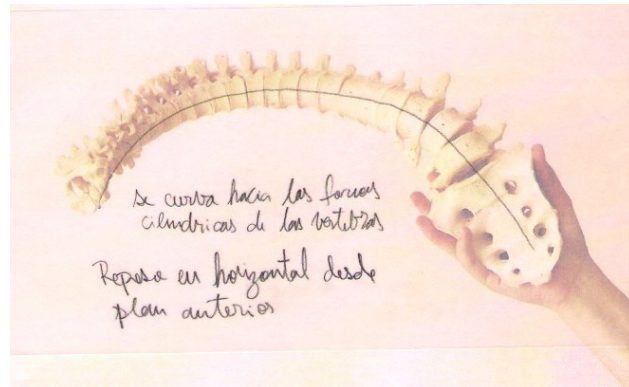 se curva hacia las formas
cilindricas de las vertebras
Reposo en horizontal desde
plan anterior